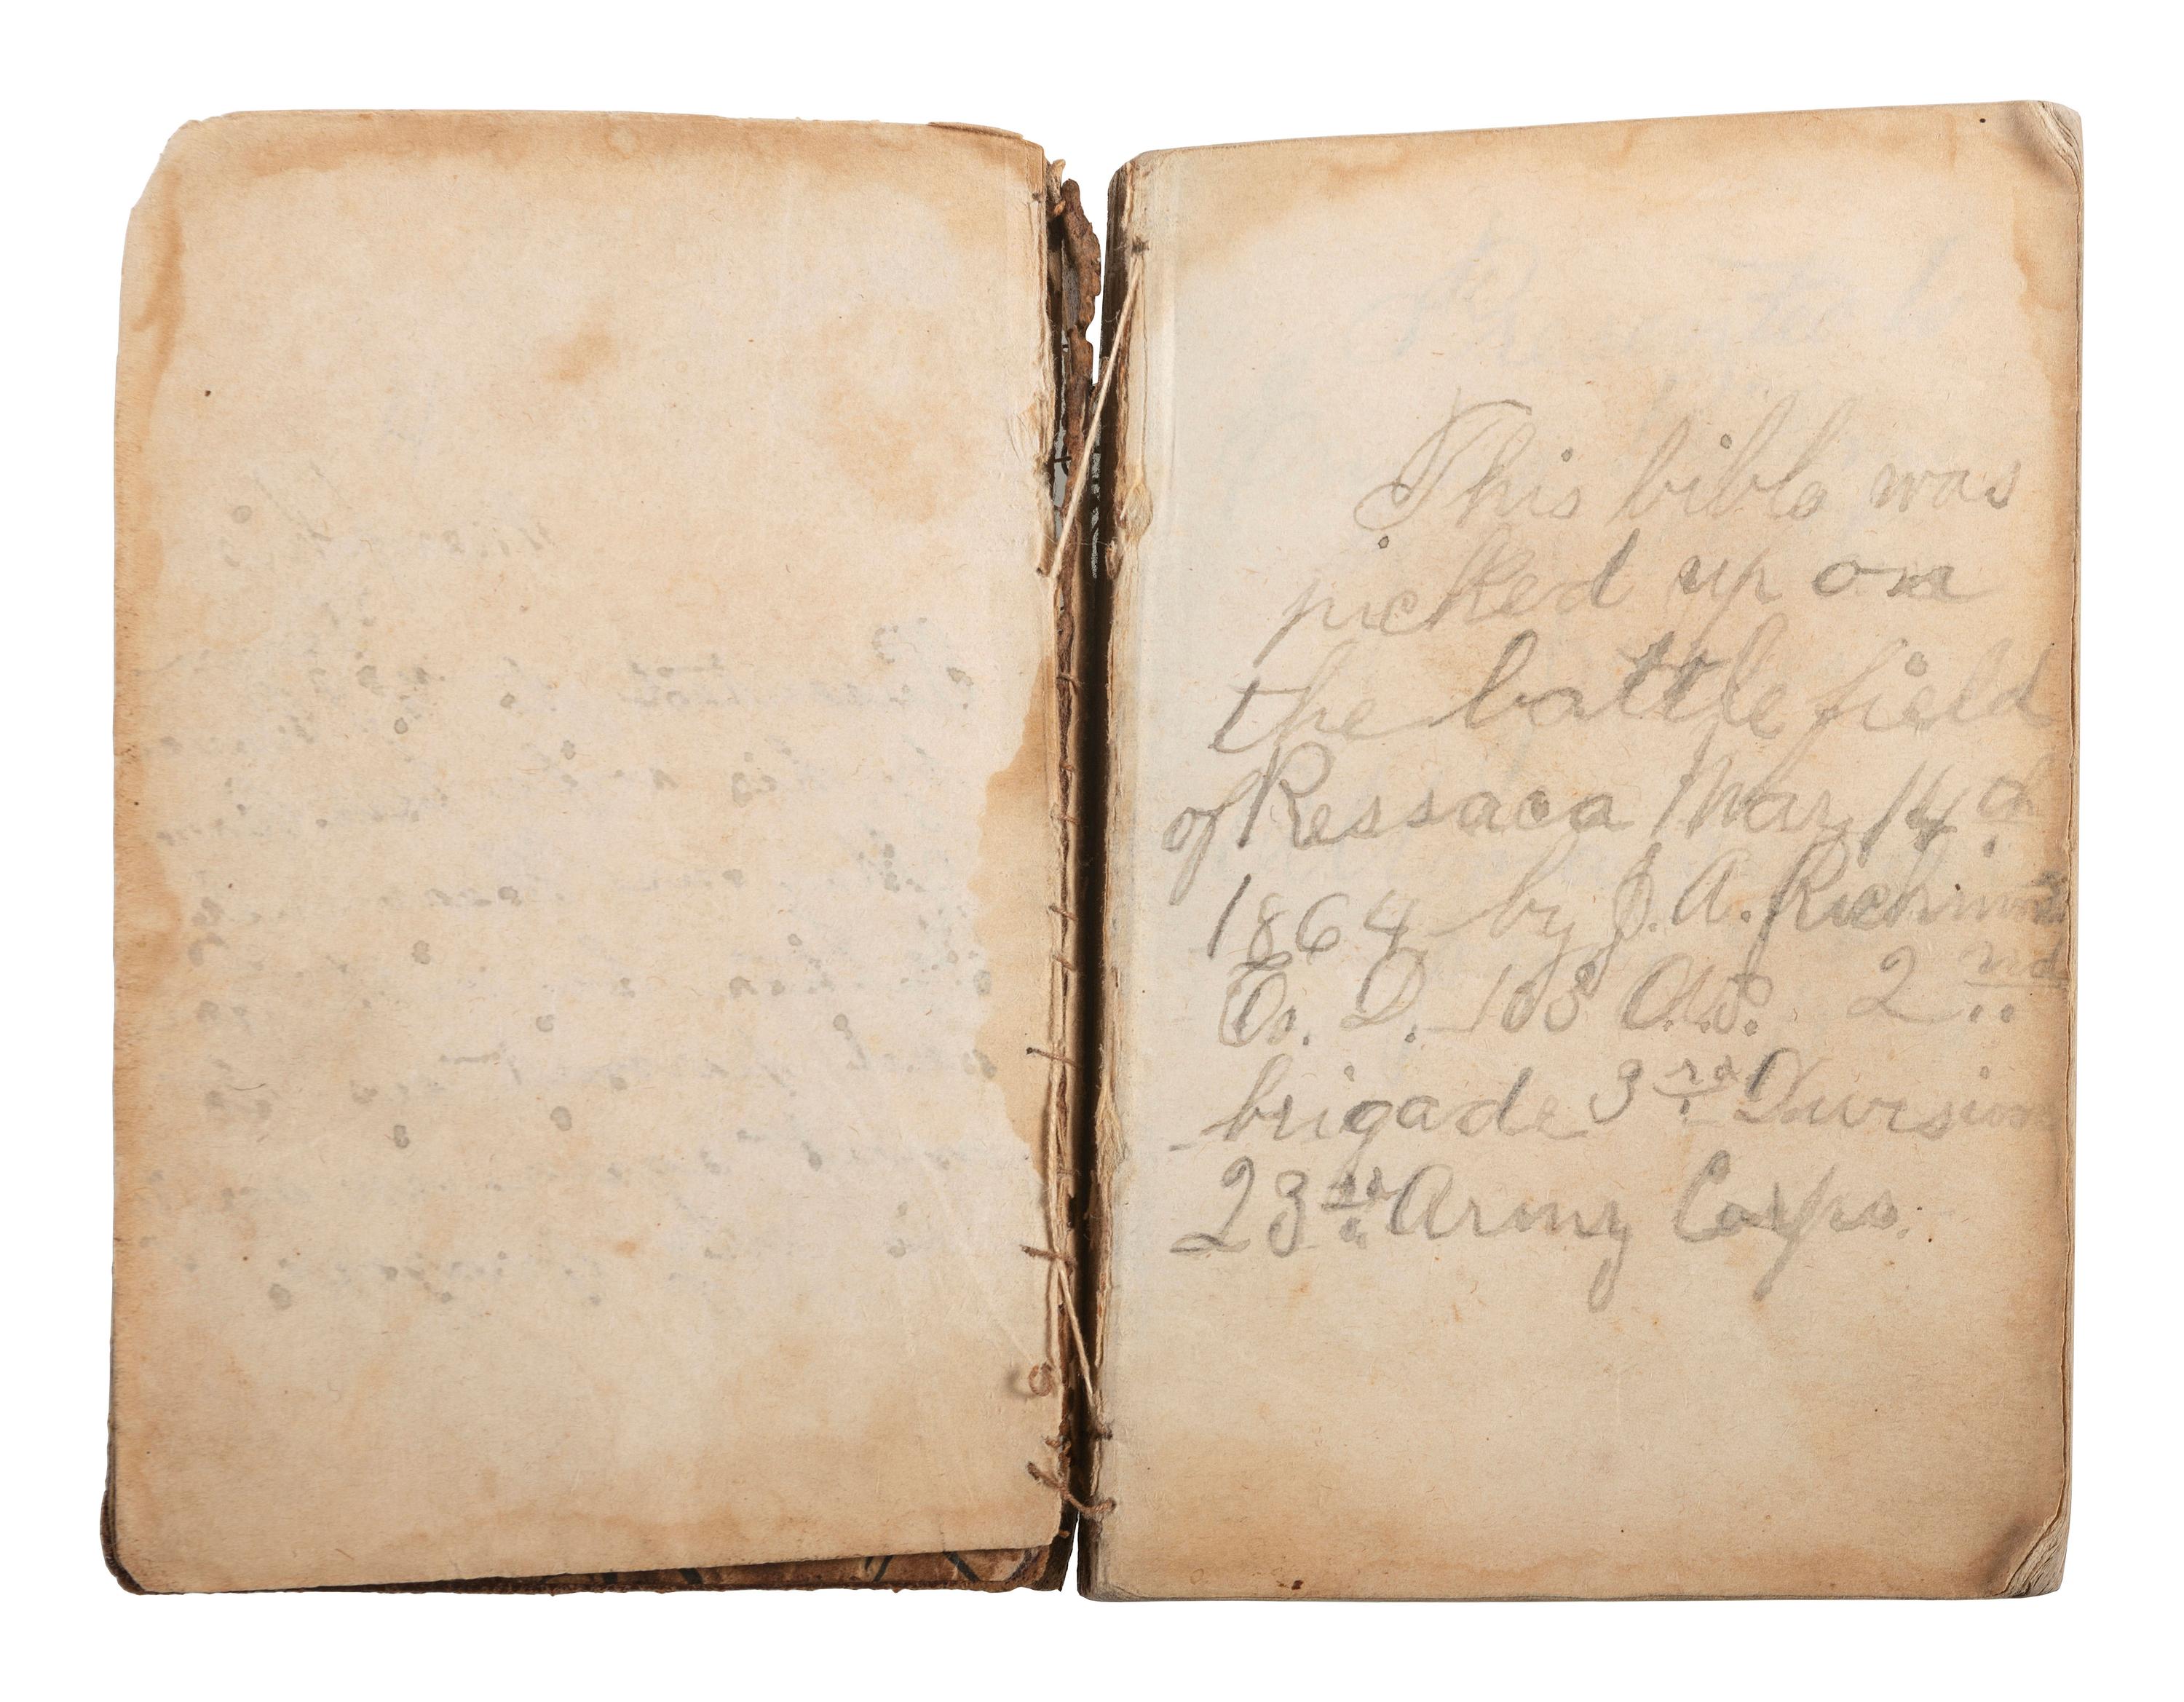 This bible was
picked up on
the battle field
of Ressaca May 14th
1864 by J. A. Richmond
Co. D. 103 O.V. 2nd
brigade 3rd Division
23rd Army Corps.